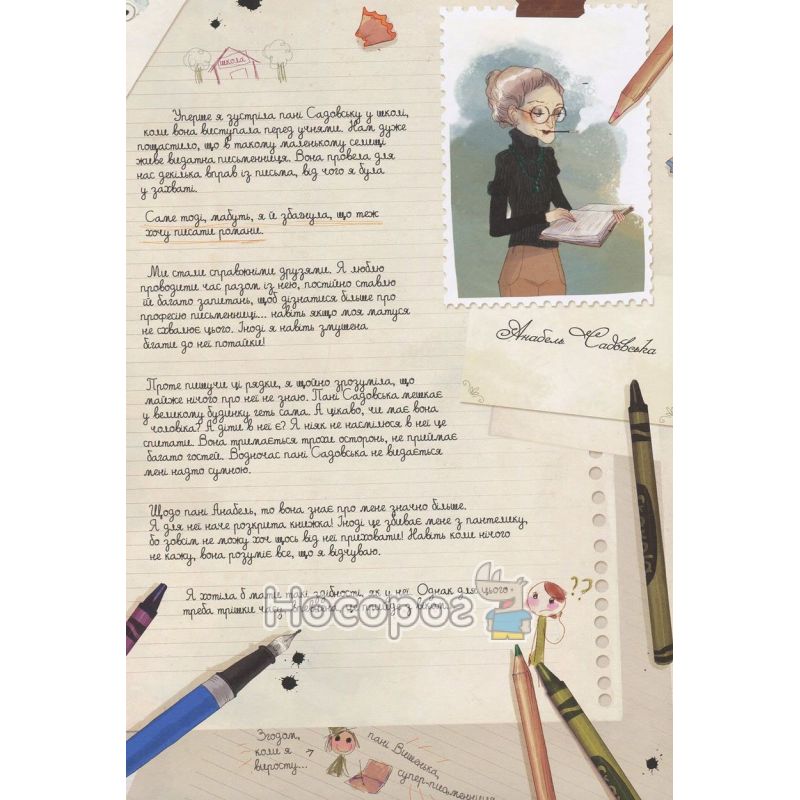 школа
Уперше я зустріла пані Садовську у школі,
коли вона виступала перед учнями. Нам дуже
пощастило, що в такому маленькому селищі
живе видатна письменниця. Вона провела для
нас декілька вправ із письма, від чого я була
у захваті.
Саме тоді, мабуть, я й збагнула, що теж
хочу писати романи.
Ми стали справжніми друзями. Я люблю
проводити час разом із нею, постійно ставлю
їй багато запитань, щоб дізнатися більше про
професію письменниці... навіть якщо моя матуся
не схвалює цього. Іноді я навіть змушена
бігати до неї потайки!
Анабель Садовська
Проте пишучи ці рядки, я щойно зрозуміла, що
майже нічого про неї не знаю. Пані Садовська мешкає
у великому будинку геть сама. А цікаво, чи має вона
чоловіка? А діти в неї є? Я ніяк не насмілюся в неї це
спитати. Вона тримається трохи осторонь, не приймає
багато гостей. Водночас пані Садовська не видається
мені надто сумною.
Щодо пані Анабель, то вона знає про мене значно більше.
Я для неї наче розкрита книжка! Іноді це збиває мене з пантелику,
бо зовсім не можу хоч щось від неї приховати! Навіть коли нічого
не кажу, вона розуміє все, що я відчуваю.
Я хотіла б мати такі здібності, як у неї. Однак для цього
треба трішки часу. впевнена, це прийде з віком.
Носорог
??
Згодом,
коли я
виросту...
пані Вишенька,
супер-письменниця
Crayola